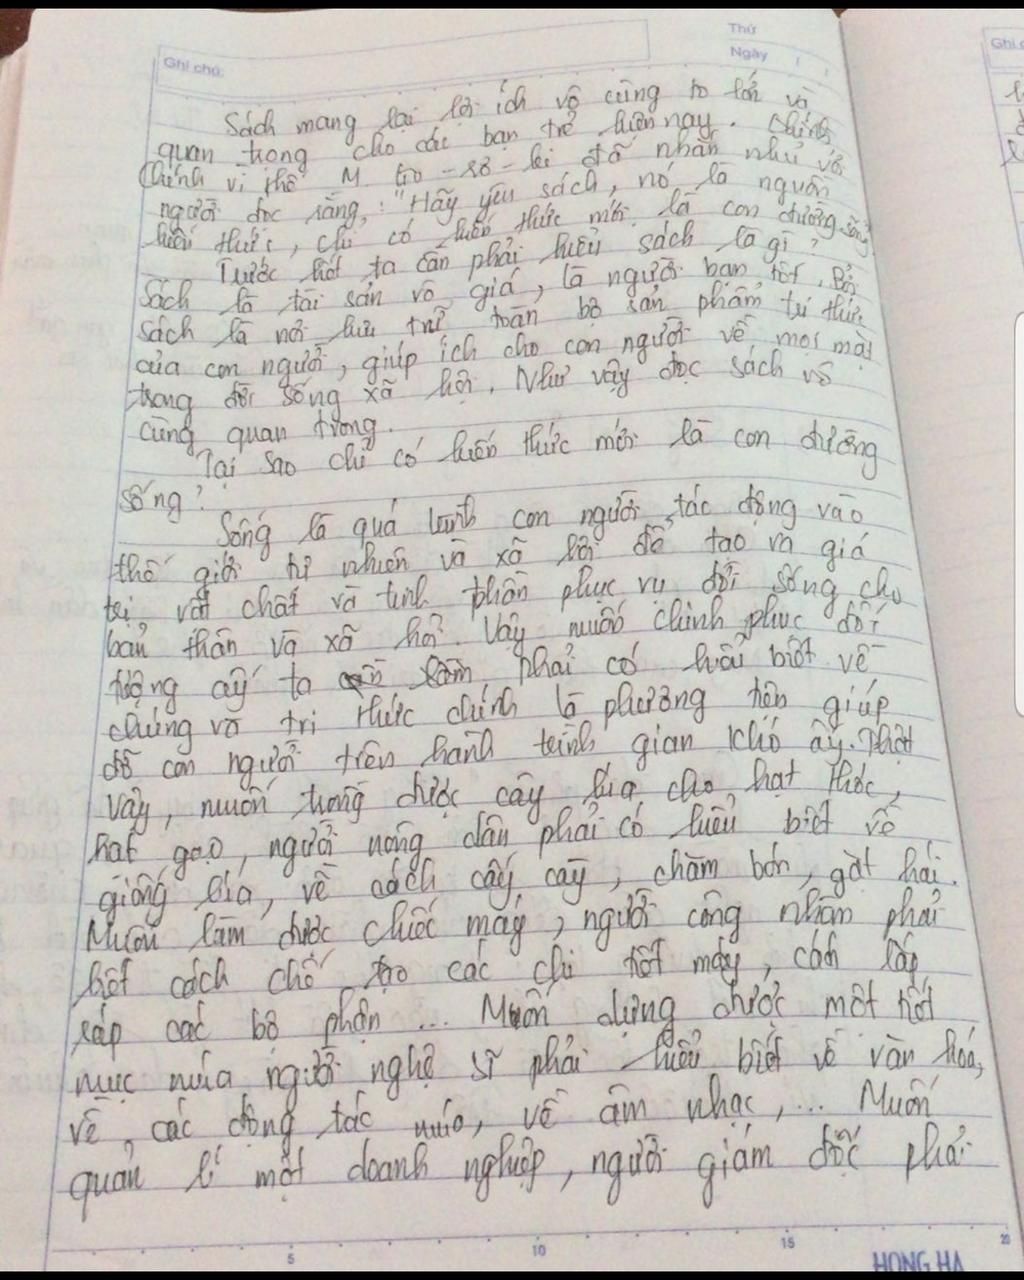 Thứ
Ngày
Ghi chú:
Sách mang lại lợi ích vô cùng to lớn và
quan trong cho các bạn trẻ hiện nay. Chính
Chính vì thế M. Go-rơ-ki đã nhắn nhủ với
người đọc rằng: "Hãy yêu sách, nó là nguồn
kiến thức, chỉ có kiến thức mới là con đường sống
Trước hết ta cần phải hiểu sách là gì?
Sách là tài sản vô giá, là người bạn tốt. Bởi
sách là nơi lưu trữ toàn bộ sản phẩm tri thức
của con người, giúp ích cho con người về mọi mặt
trong đời sống xã hội. Như vậy đọc sách vô
cùng quan trong.
Tại sao chỉ có kiến thức mới là con đường
sống?
Sống là quá trình con người tác động vào
thế giới tự nhiên và xã hội để tạo ra giá
trị vật chất và tinh thần phục vụ đời sống cho
bản thân và xã hội. Vậy muốn chinh phục đối
tượng ấy ta phải có hiểu biết về
chúng và tri thức chính là phương tiện giúp
đỡ con người trên hành trình gian khó ấy. Thật
vậy, muốn trong được cây lúa cho hạt thóc,
hạt gạo, người nông dân phải có hiểu biết về
giống lúa, về cách cấy cày, chăm bón, gặt hái.
Muốn làm được chiếc máy, người công nhân phải
biết cách chế tạo các chi tiết máy, cách lắp
ráp các bộ phận ... Muốn dựng được một tiết
mục múa người nghệ sĩ phải hiểu biết về văn hoá,
về các động tác múa, về âm nhạc, ... Muốn
quản lí một doanh nghiệp, người giám đốc phải
5 10 15 20
HONG HA
Ghi c